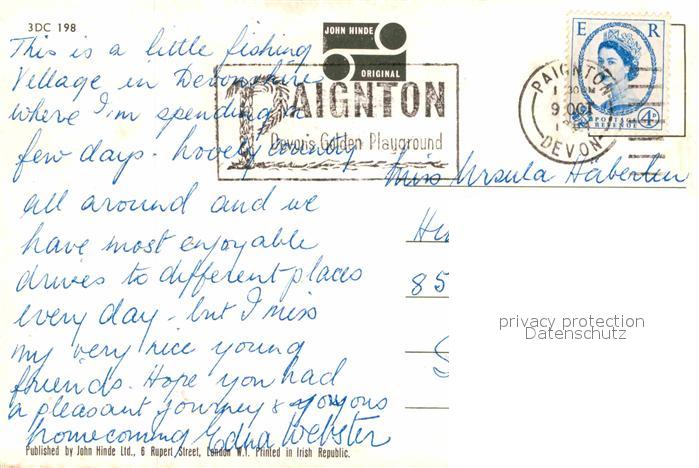 3DC 198
JOHN HINDE
ORIGINAL
PAIGNTON
Devon's Golden Playground
E R
POSTAGE
REVENUE
4D
PAIGNTON
9 OCT
DEVON
This is a little fishing
Village in Devonshire
where I'm spending a
few days. Lovely country
all around and we
have most enjoyable
drives to different places
every day - but I miss
my very nice young
friends. Hope you had
a pleasant journey & joyous
homecoming Edna Webster
Miss Ursula Häberlin
85
privacy protection
Datenschutz
Published by John Hinde Ltd., 6 Rupert Street, London W.1. Printed in Irish Republic.